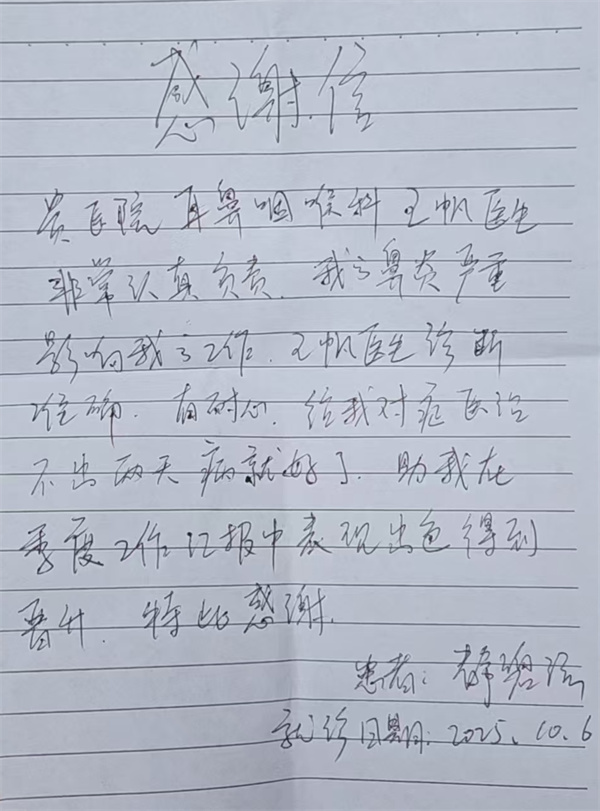 感谢信
贵医院耳鼻咽喉科王帆医生
非常认真负责.我的鼻炎严重
影响我的工作.王帆医生诊断
准确.有耐心.给我对症医治
不出两天病就好了.助我在
季度工作汇报中表现出色得到
晋升.特此感谢.
患者:
就诊日期:2025.10.6